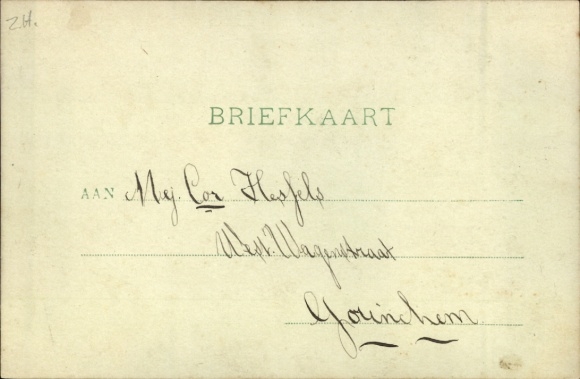 Z.H.
BRIEFKAART
AAN Mej. Cor Hessels
West. Wagenstraat
Gorinchem